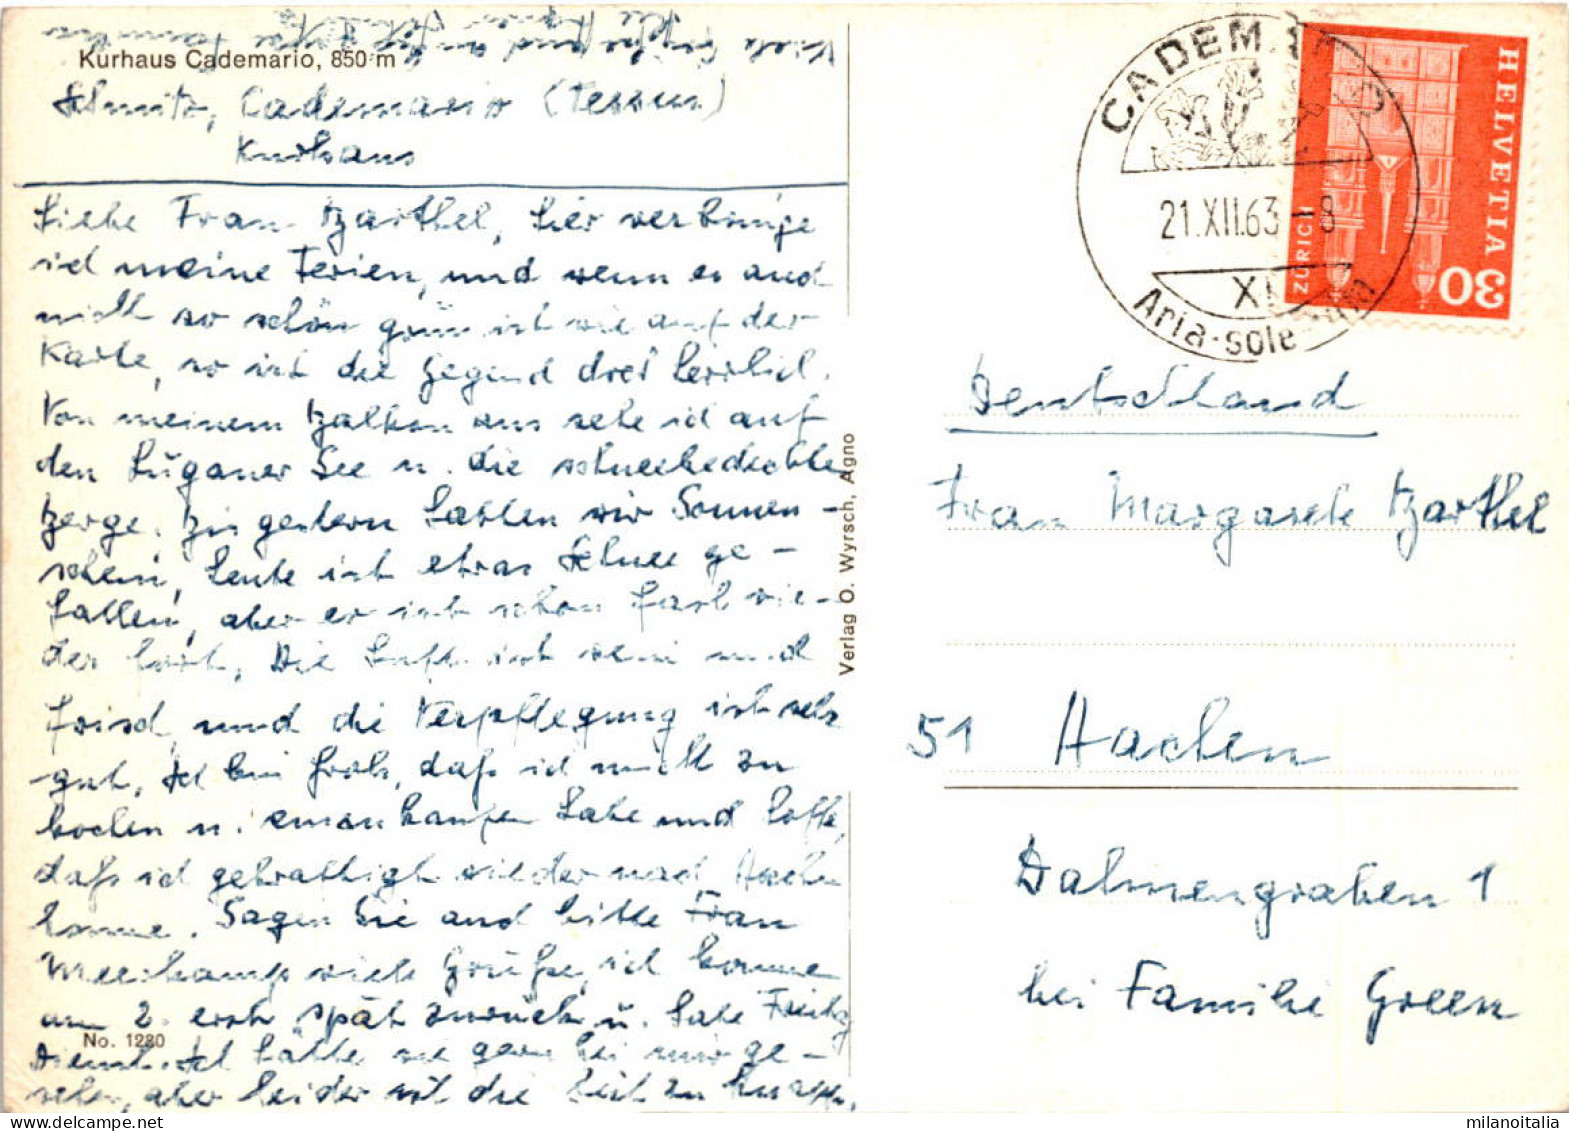 Kurhaus Cademario, 850 m
Schmitz, Cademario (Tessin)
Kurhaus
Liebe Frau Barthel, hier verbringe
ich meine Ferien, und wenn es auch
nicht so schön grün ist wie auf der
Karte, so ist die Gegend doch herrlich.
Von meinem Balkon aus sehe ich auf
den Luganer See u. die schneebedeckten
Berge. Bis gestern hatten wir Sonnen-
schein, heute ist etwas Schnee ge-
fallen, aber er ist schon fast wie-
der fort. Die Luft ist rein und
frisch, und die Verpflegung ist sehr
gut. Ich bin froh, daß ich nicht zu
kochen u. einzukaufen habe und hoffe,
daß ich gekräftigt wieder nach Aachen
komme. Sagen Sie auch bitte Frau
viele Grüße, ich komme
am 2. erst spät zurück u. habe Freitag
Dienst. Ich hätte sie gern bei mir ge-
sehen, aber leider ist die Zeit zu knapp.
Viele Grüße auch an Familie
No. 1280
Verlag O. Wyrsch, Agno
CADEMARIO
21.XII.63 - 8
XI
Aria-sole
HELVETIA
ZÜRICH
30
Deutschland
Frau Margarete Barthel
51 Aachen
Dahmengraben 1
bei Familie Green
milanoitalia